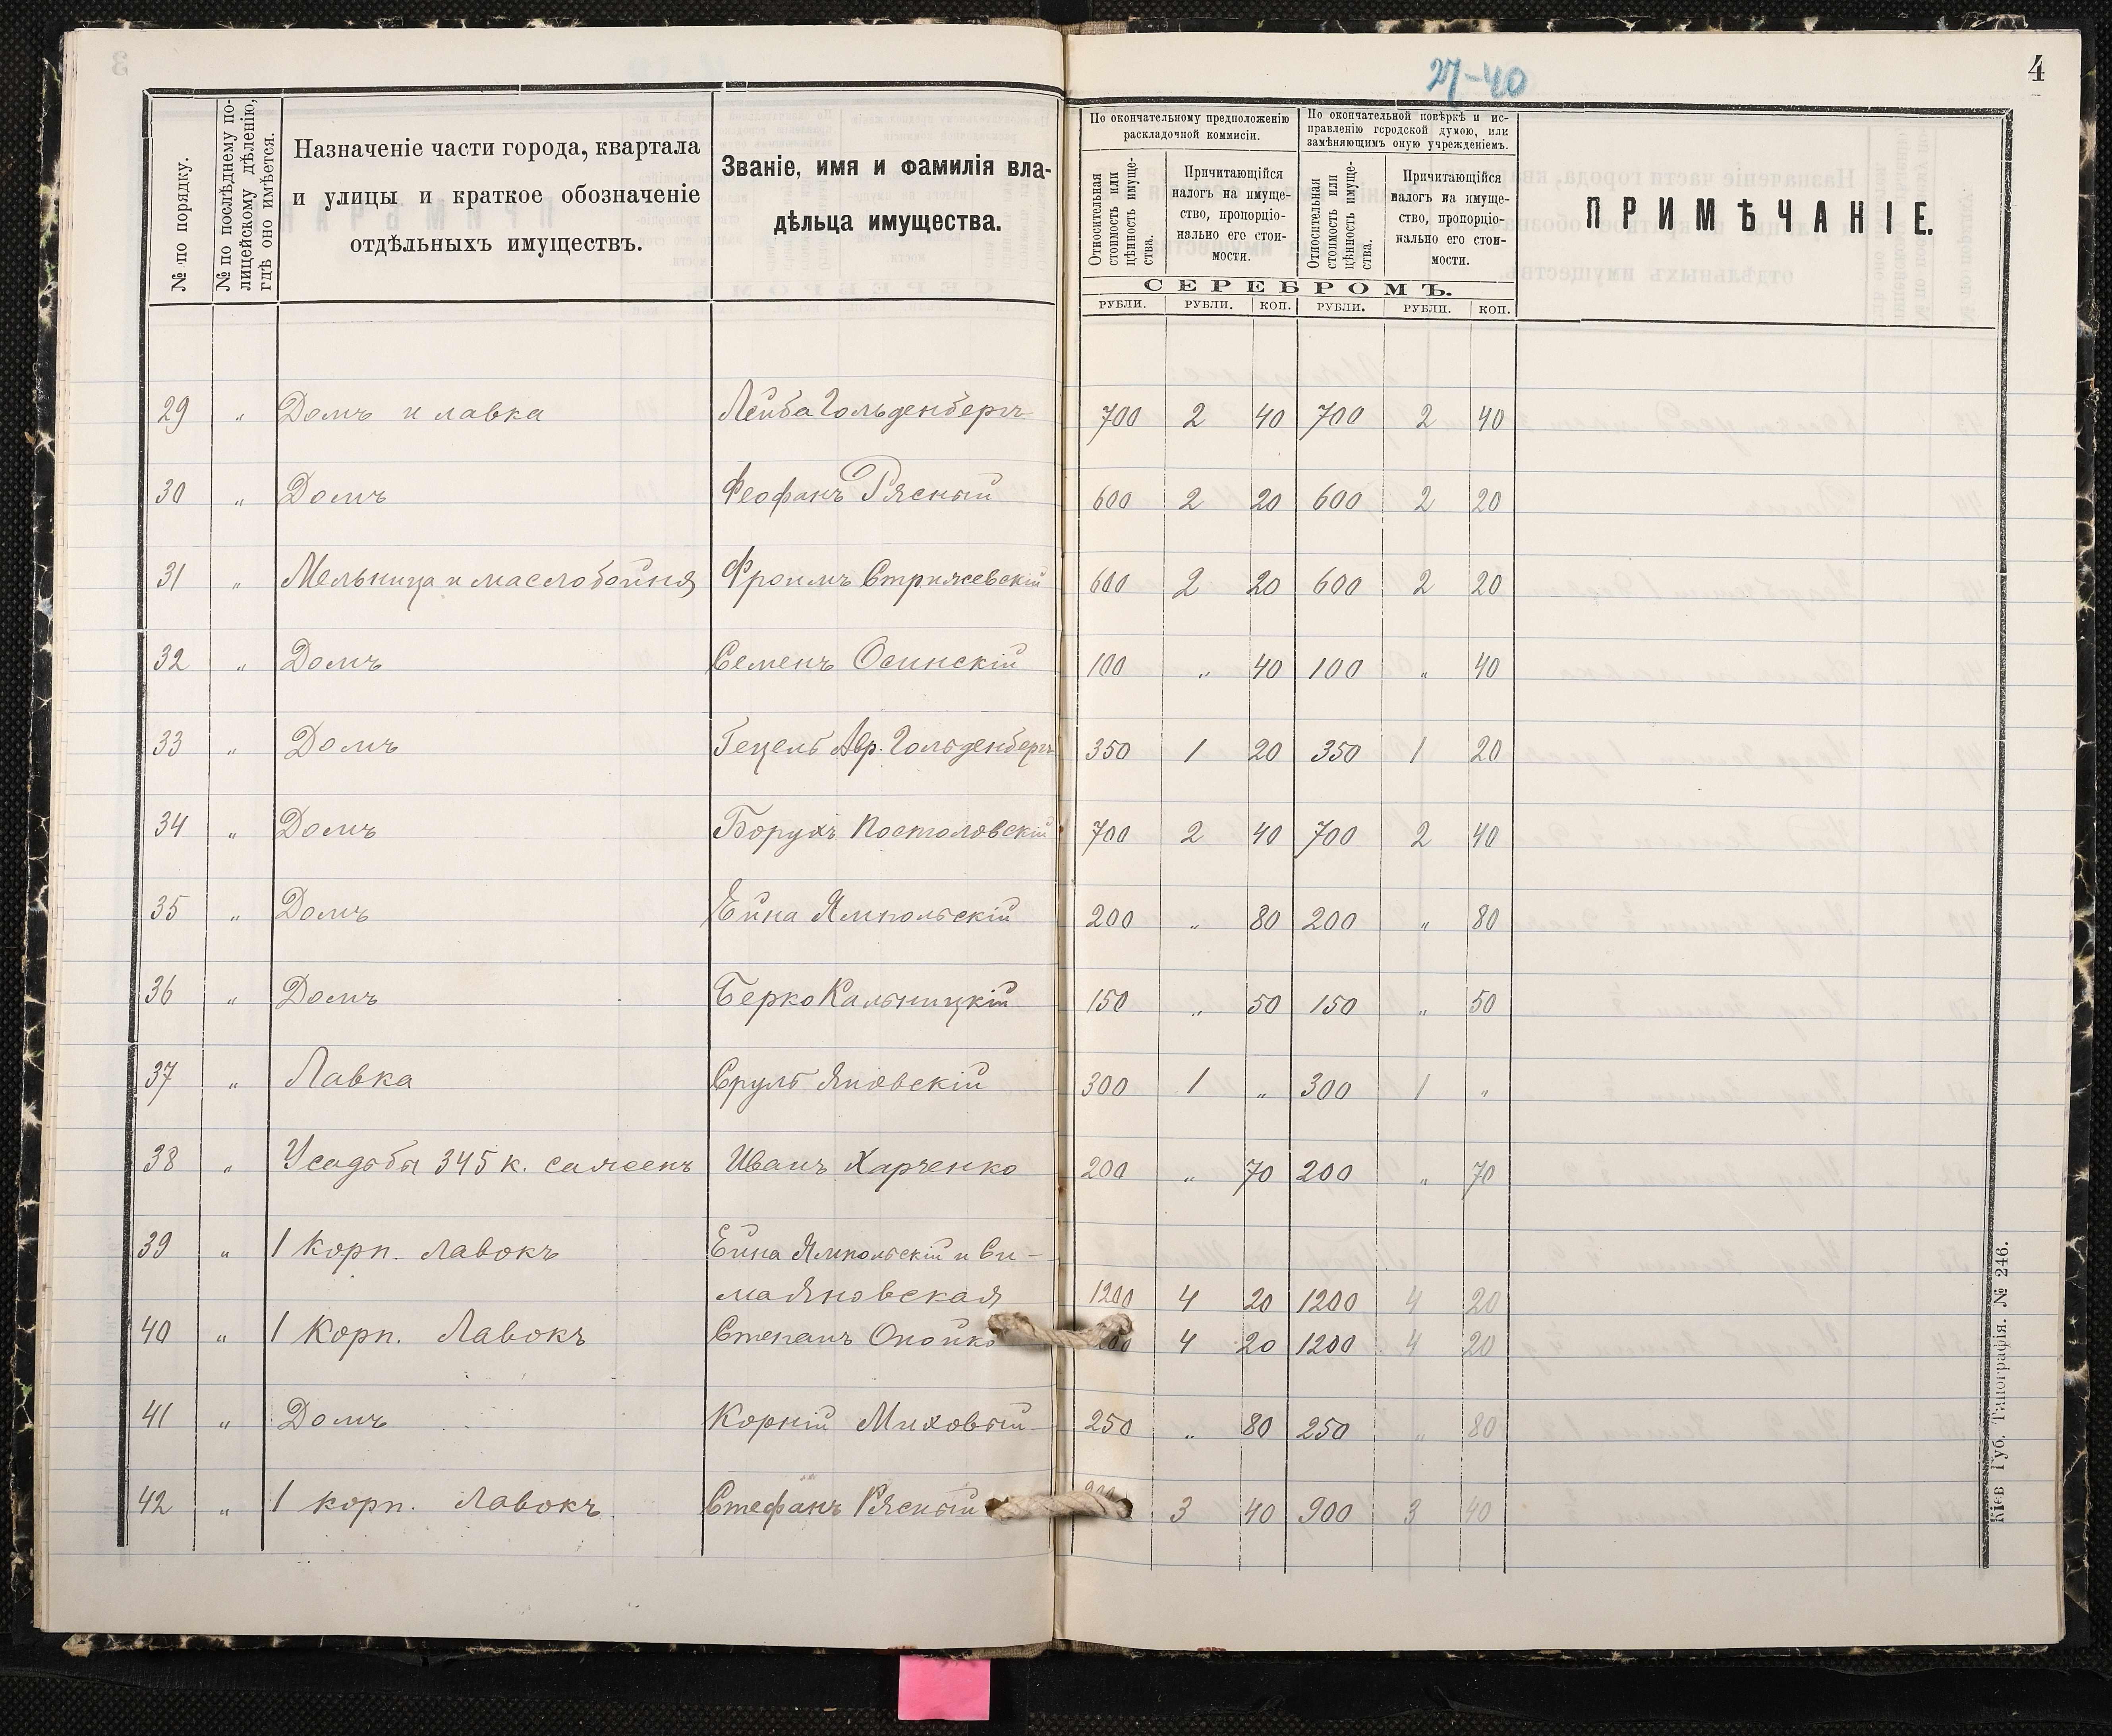 27-40
4
№ по порядку.
№ по послѣднему по-
лицейскому дѣленію,
гдѣ оно имѣется.
Назначеніе части города, квартала
и улицы и краткое обозначеніе
отдѣльныхъ имуществъ.
Званіе, имя и фамилія вла-
дѣльца имущества.
По окончательному предположенію
раскладочной коммисіи.
По окончательной повѣркѣ и ис-
правленію городской думою, или
замѣняющимъ оную учрежденіемъ.
Относительная
стоимость или
цѣнность имуще-
ства.
Причитающійся
налогъ на имуще-
ство, пропорціо-
нально его стои-
мости.
Относительная
стоимость или
цѣнность имуще-
ства.
Причитающійся
налогъ на имуще-
ство, пропорціо-
нально его стои-
мости.
ПРИМѢЧАНІЕ.
СЕРЕБРОМЪ.
РУБЛИ. РУБЛИ. КОП. РУБЛИ. РУБЛИ. КОП.
29 " Домъ и лавка Лейба Гольденбергъ 700 2 40 700 2 40
30 " Домъ Феофанъ Рясный 600 2 20 600 2 20
31 " Мельница и маслобойня Фроимъ Стрижевскій 600 2 20 600 2 20
32 " Домъ Семенъ Осинскій 100 " 40 100 " 40
33 " Домъ Гецель Авр. Гольденбергъ 350 1 20 350 1 20
34 " Домъ Борухъ Постоловскій 700 2 40 700 2 40
35 " Домъ Ейна Ямпольскій 200 " 80 200 " 80
36 " Домъ Берко Кальницкій 150 " 50 150 " 50
37 " Лавка Сруль Яновскій 300 1 " 300 1 "
38 " Усадьбы 345 к. сажень Иванъ Харченко 200 " 70 200 " 70
39 " 1 корп. лавокъ Ейна Ямпольскій и Си-
ма Яновская 1200 4 20 1200 4 20
40 " 1 Корп. Лавокъ Степанъ 4 20 1200 4 20
41 " Домъ Корній Миховый 250 " 80 250 " 80
42 " 1 корп. Лавокъ Стефанъ Рясный 3 40 900 3 40
Кіев Губ. Типографія. № 246.